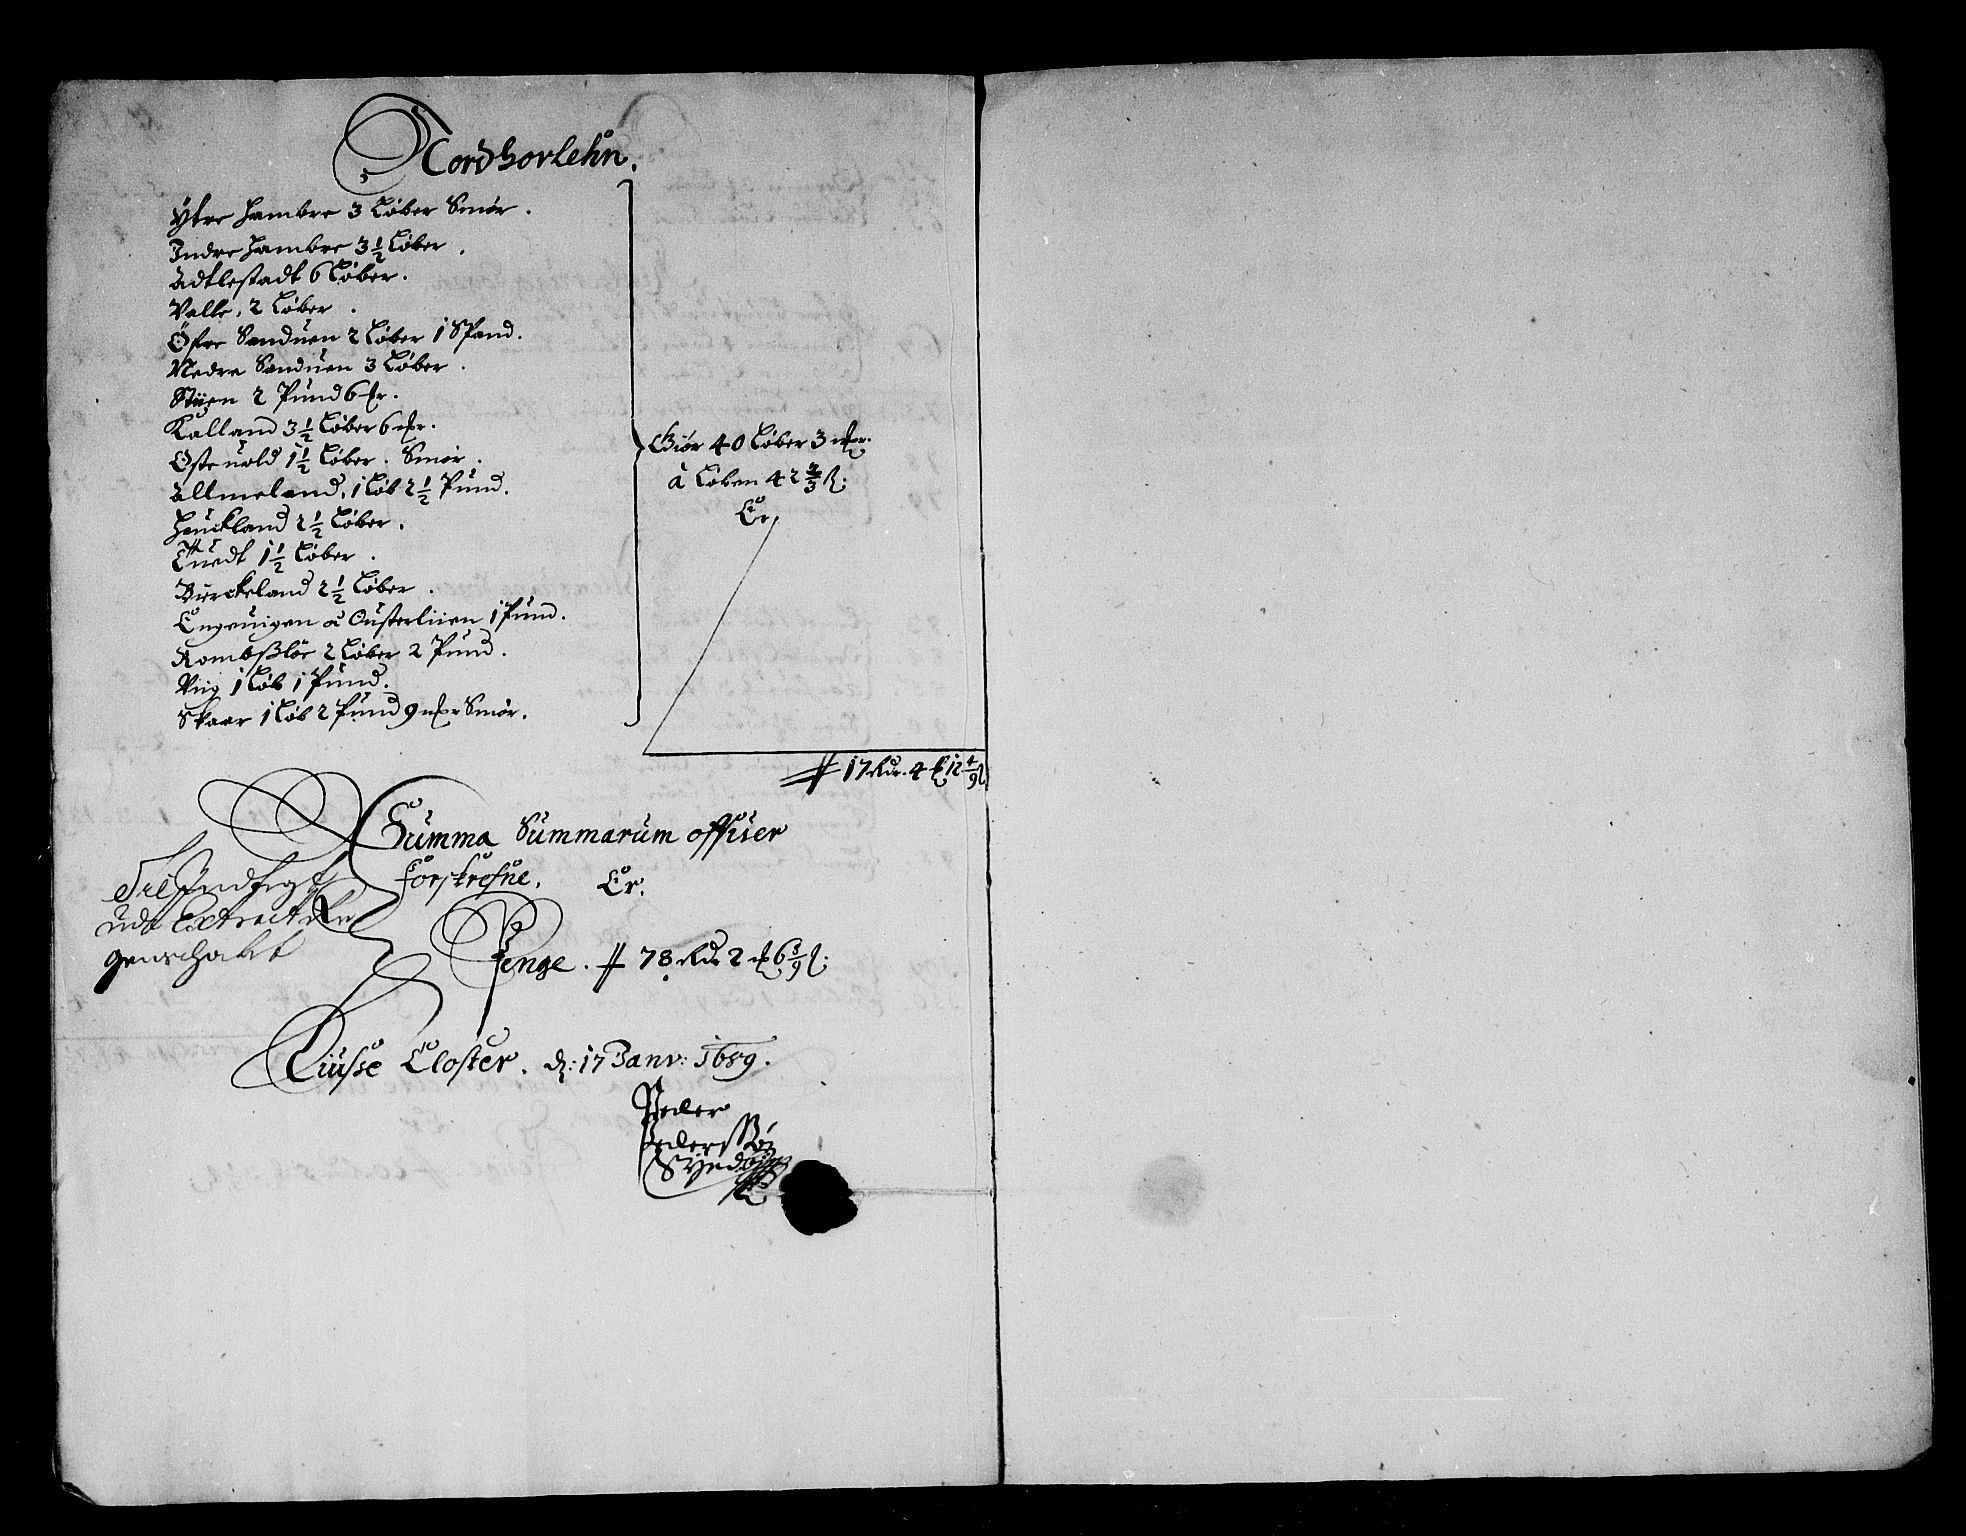 Nordhorlehn.
Ytre Hambre 3 Løber Smør.
Indre Hambre 3½ Løber.
Adtlestadt 6 Løber.
Valle, 2 Løber.
Öfre Sanduen 2 Løber 1 Spand.
Nedre Sanduen 3 Løber.
2 Pund 6 mr.
Kalland 3½ Løber 6 mr.
Osteuold 1½ Løber. Smør.
Allmeland, 1 Løb 2½ Pund.
Hauckland 2½ Løber.
Tuedt 1½ Løber.
Birckeland 2½ Løber.
Engeuigen å Ousterliien 1 Pund.
Rombszløe 2 Løber 2 Pund.
Viig 1 Løb 1 Pund.
Skaar 1 Løb 2 Pund 9 mr Smør.
Giør 40 Løber 3 mr.
à Løben 42⅔ ß:
Er,
17 Rdr. 4 mk 12 4/9 ß
Summa Summarum offuer
forskrefne. Er.
Penge. 78 Rdr 2 mk 6 5/9 ß:
Til
udi Extracten
genschabt
Liusse Closter. d: 17 Janv: 1689.
Peder
Pedersßøn